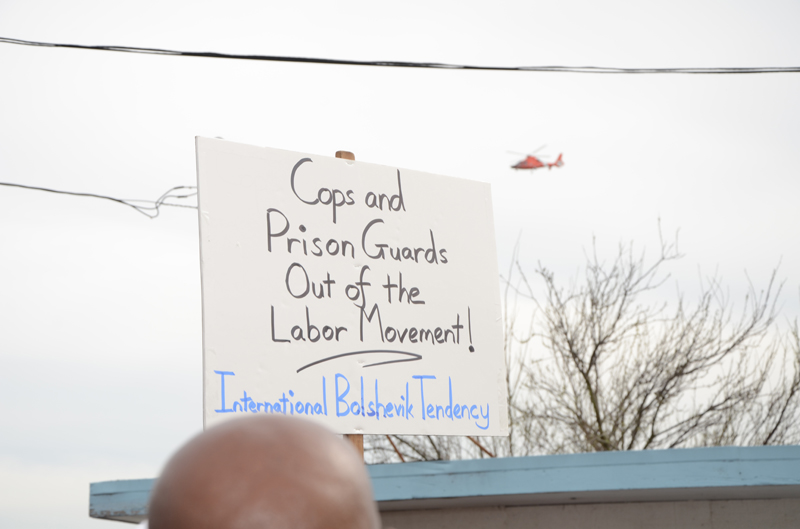 Cops and
Prison Guards
Out of the
Labor Movement!
International Bolshevik Tendency